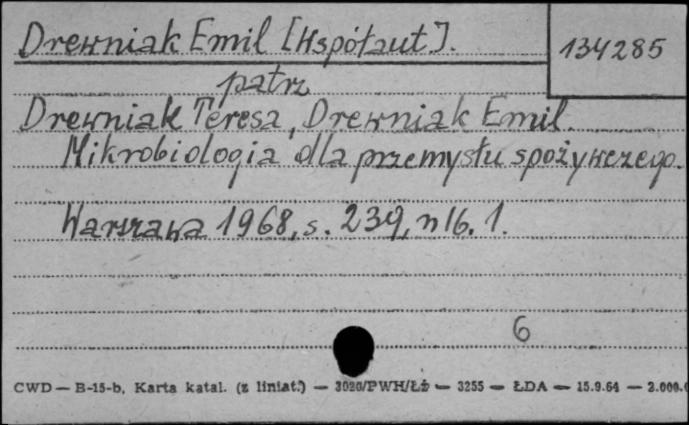 Drewniak Emil [Współaut].
134285
patrz
Drewniak Teresa, Drewniak Emil.
Mikrobiologia dla przemysłu spożywczego.
Warszawa 1968, s. 239, nlb. 1.
6
CWD — B-15-b, Karta katal. (z liniat.) — 3020/PWH/Łż — 3255 — ŁDA — 15.9.64 — 2.000.0